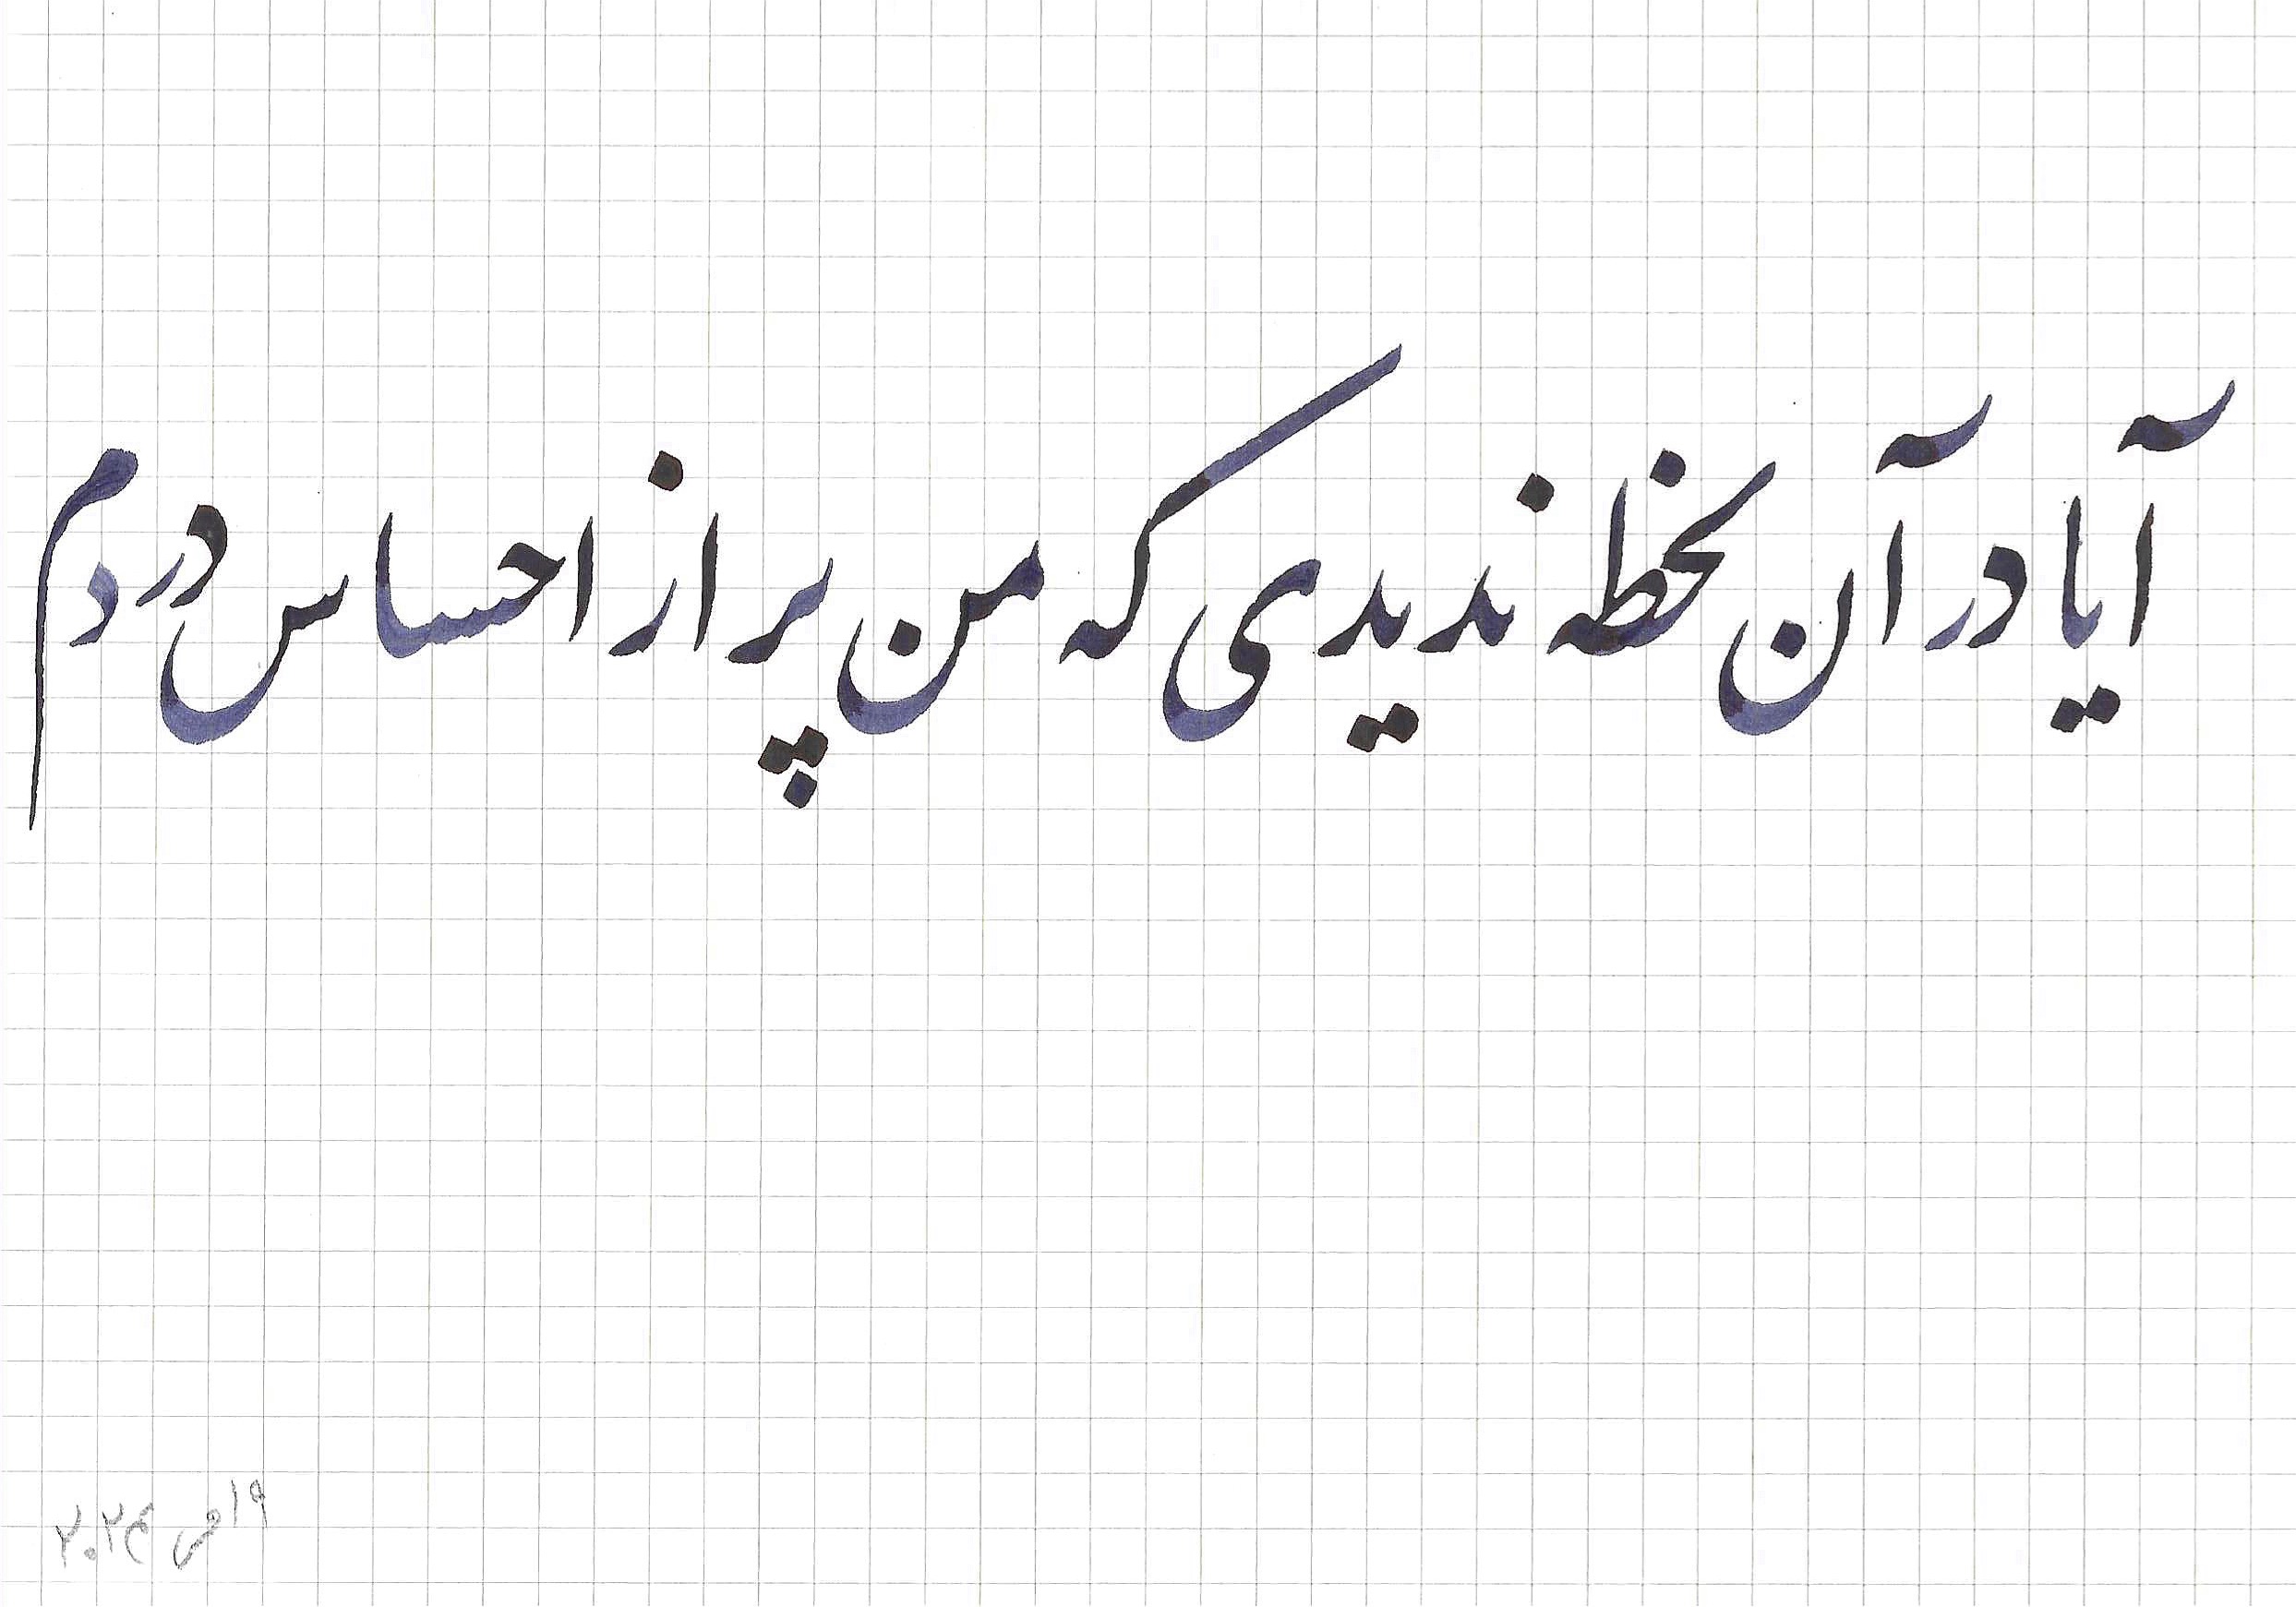 آیا در آن لحظه ندیدی که من پر از احساس دردم
۱۹ می ۲۰۲۴